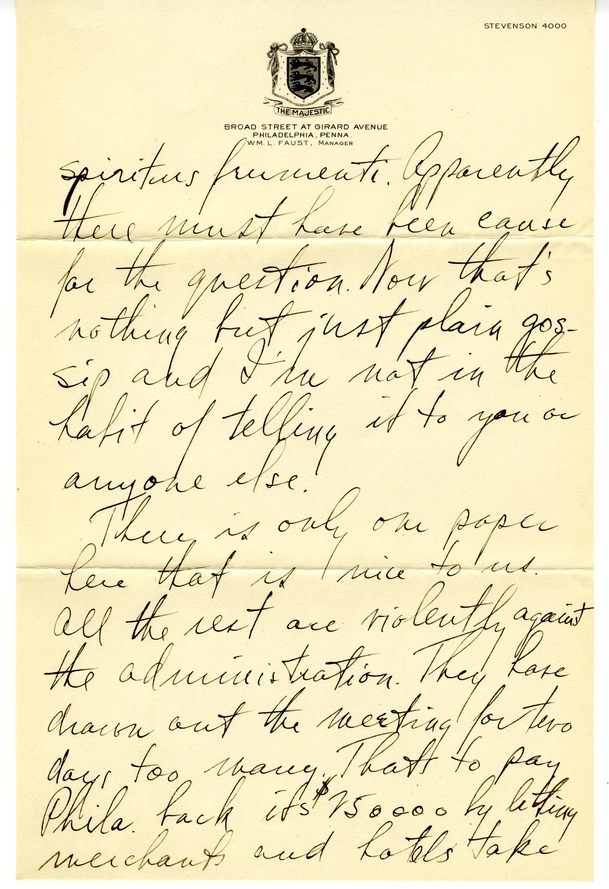 STEVENSON 4000
THE MAJESTIC
BROAD STREET AT GIRARD AVENUE
PHILADELPHIA, PENNA.
WM. L. FAUST, MANAGER
spiritus frumenti. Apparently
there must have been cause
for the question. Now that's
nothing but just plain gos-
sip and I'm not in the
habit of telling it to you or
anyone else.
There is only one paper
here that is nice to us.
All the rest are violently against
the administration. They have
drawn out the meeting for two
days too many. That's to pay
Phila. back its $250000 by letting
merchants and hotels take